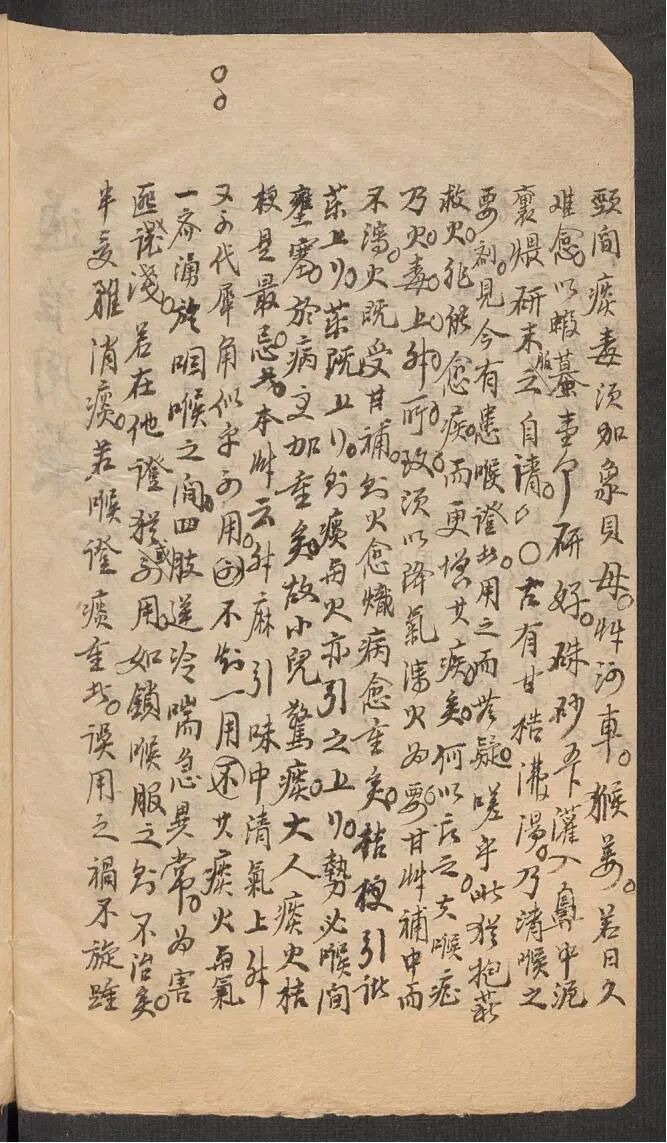 頸間痰毒須加象貝母。草河車。猴姜。若日久
难愈。以蝦蟇壹个研好。硃砂五下灌入鼻中泥
裹煨研末服之自清。〇古有甘桔沸湯。乃清喉之
要剂。見今有患喉證者。用之而無疑。嗟乎此猶抱薪
救火。非能愈疾。而更增其疾矣。何以言之夫喉症
乃火毒上升所致須以降氣瀉火為要甘草補中而
不瀉。火既受甘補。則火愈熾病愈重矣。桔梗引諸
药上行。药既上行。則痰與火亦引之上行。勢必喉間
壅塞。於病更加重矣。故小兒驚痰。大人痰火桔
梗是最忌者。本草云升麻引味中清氣上升
又可代犀角似乎可用。不知一用其痰火與氣
一齊湧於咽喉之间。四肢逆冷喘急異常。為害
匪淺。若在他證猶可用。如鎖喉服之則不治矣。
半夏雖消痰。若喉證痰重者。誤用之禍不旋踵